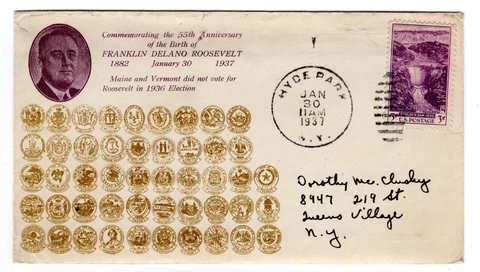 Commemorating the 55th Anniversary
of the Birth of
FRANKLIN DELANO ROOSEVELT
1882 January 30 1937
Maine and Vermont did not vote for
Roosevelt in 1936 Election
HYDE PARK
JAN
30
11AM
1937
N.Y.
U.S. POSTAGE 3¢
Dorothy Mc. Clusky
8947 219 St.
Queens Village
N.Y.